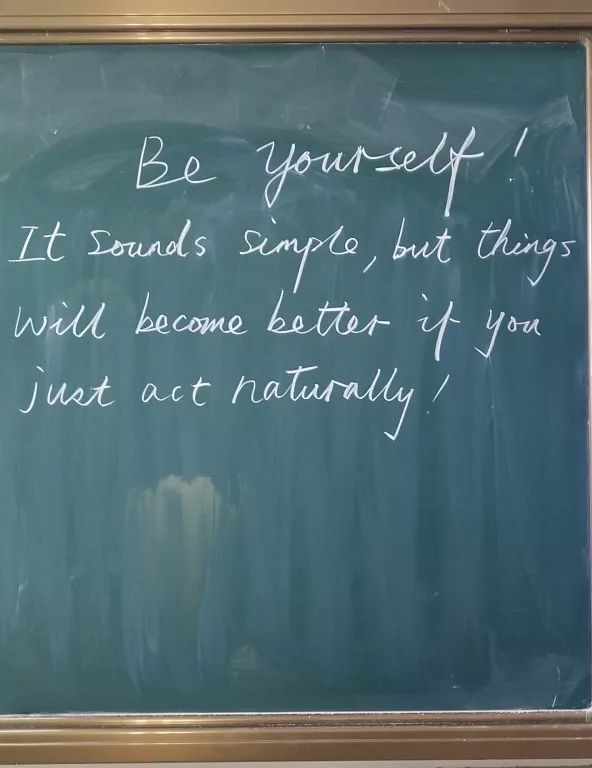 Be yourself!
It sounds simple, but things
will become better if you
just act naturally!